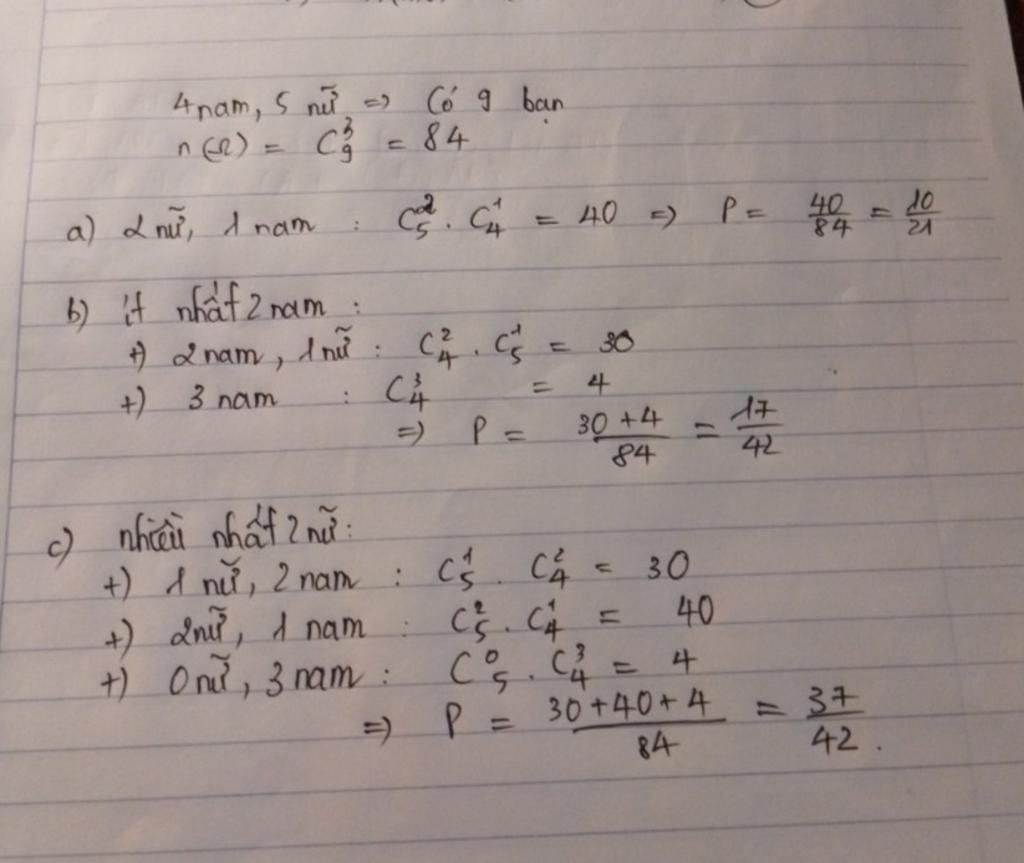 4 nam, 5 nữ => Có 9 bạn
n(Ω) = C₉³ = 84
a) 2 nữ, 1 nam : C₅² . C₄¹ = 40 => P = 40/84 = 10/21
b) ít nhất 2 nam :
+) 2 nam, 1 nữ : C₄² . C₅¹ = 30
+) 3 nam : C₄³ = 4
=> P = (30 + 4)/84 = 17/42
c) nhiều nhất 2 nữ :
+) 1 nữ, 2 nam : C₅¹ . C₄² = 30
+) 2 nữ, 1 nam : C₅² . C₄¹ = 40
+) 0 nữ, 3 nam : C₅⁰ . C₄³ = 4
=> P = (30 + 40 + 4)/84 = 37/42 .